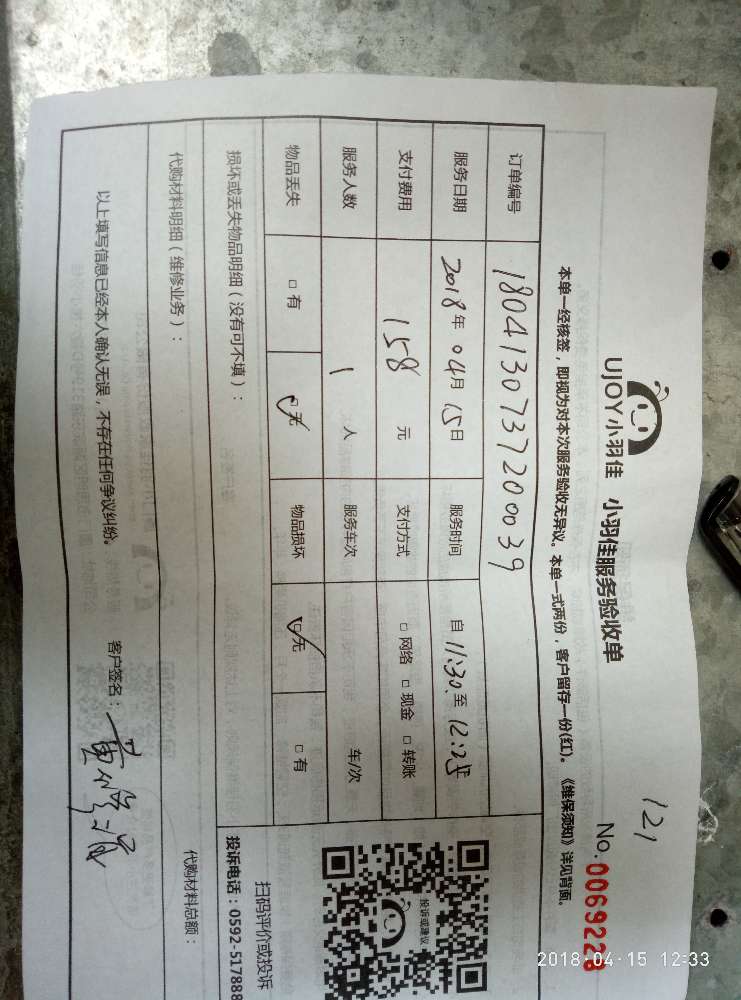 121
UJOY小羽佳 小羽佳服务验收单
No. 0069228
本单一经核签，即视为对本次服务验收无异议。本单一式两份，客户留存一份(红)。《维保须知》详见背面。
订单编号 180413073720039
服务日期 2018年04月15日 服务时间 自11:30至12:25
支付费用 158元 支付方式 □网络 □现金 □转账
服务人数 1人 服务车次 车/次
物品丢失 □有 □无 物品损坏 □无 □有
损坏或丢失物品明细（没有可不填）：
代购材料明细（维修业务）：
代购材料总额：
以上填写信息已经本人确认无误，不存在任何争议纠纷。 客户签名：
投诉或建议
扫码评价或投诉
投诉电话：0592-517888
2018-04-15 12:33